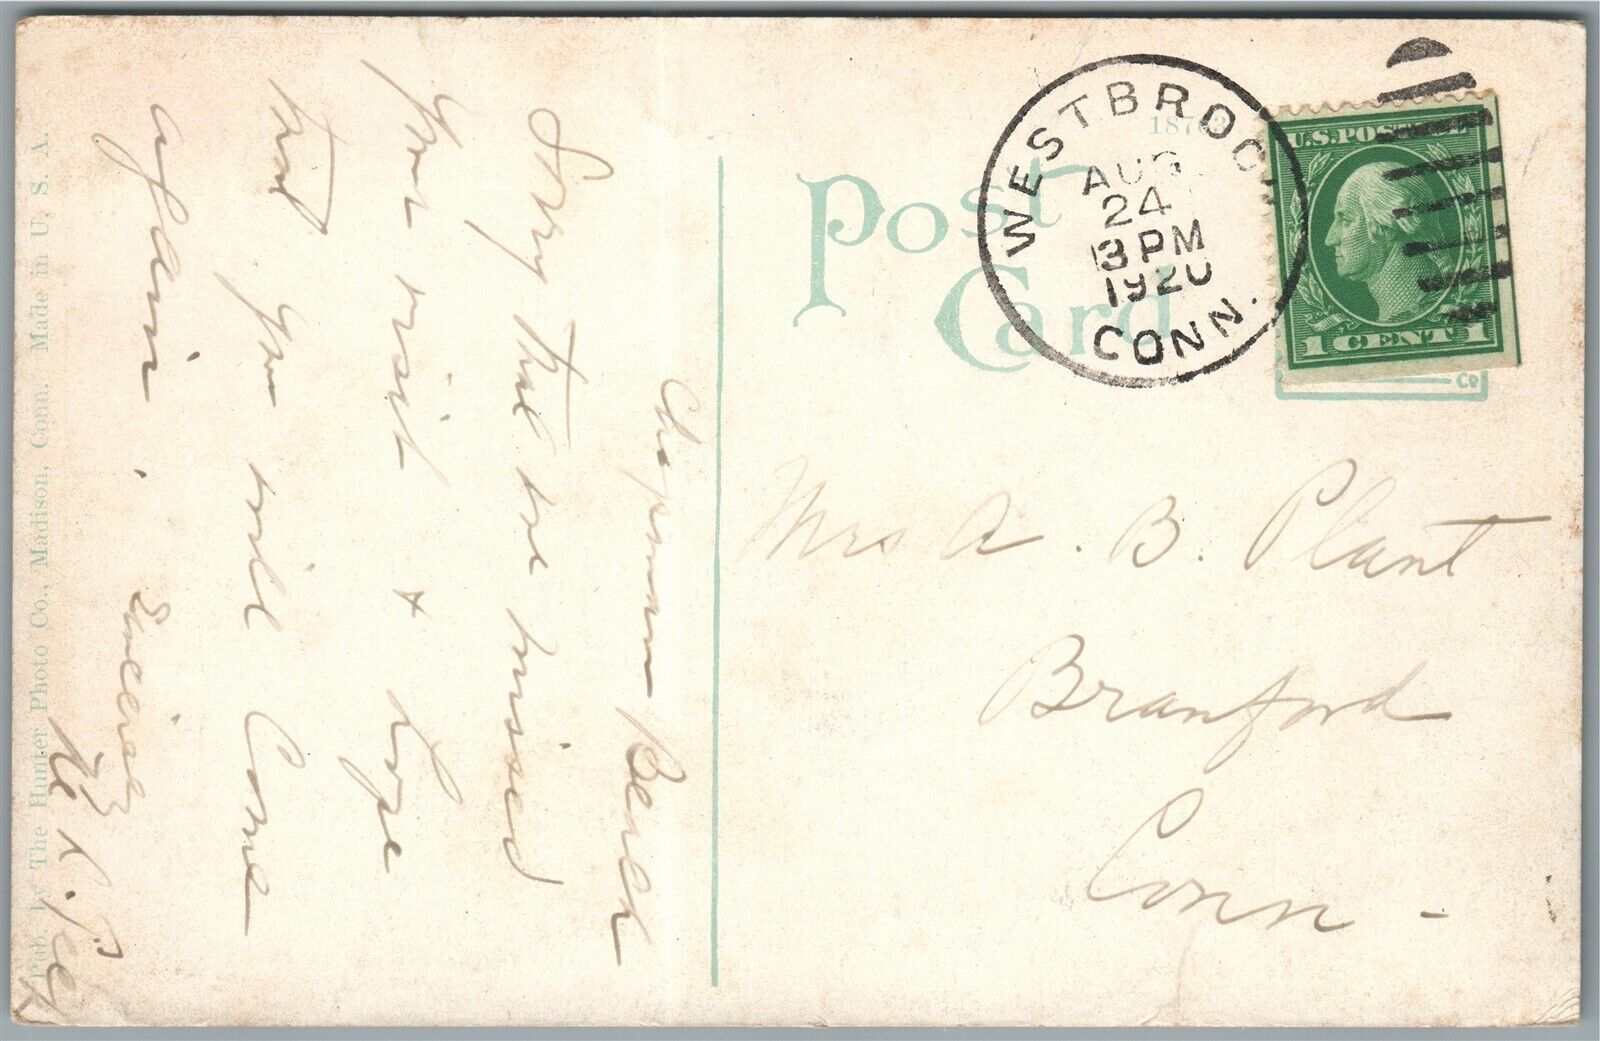 Chapman Beach
Sorry that we missed
your visit & hope
that you will come
again. Sincerely
Pub. by The Hunter Photo Co., Madison, Conn. Made in U. S. A.
Post
Card
WESTBROOK
AUG
24
3 PM
1920
CONN.
U.S. POSTAGE
1 CENT 1
Co
Mrs A. B. Plant
Branford
Conn -